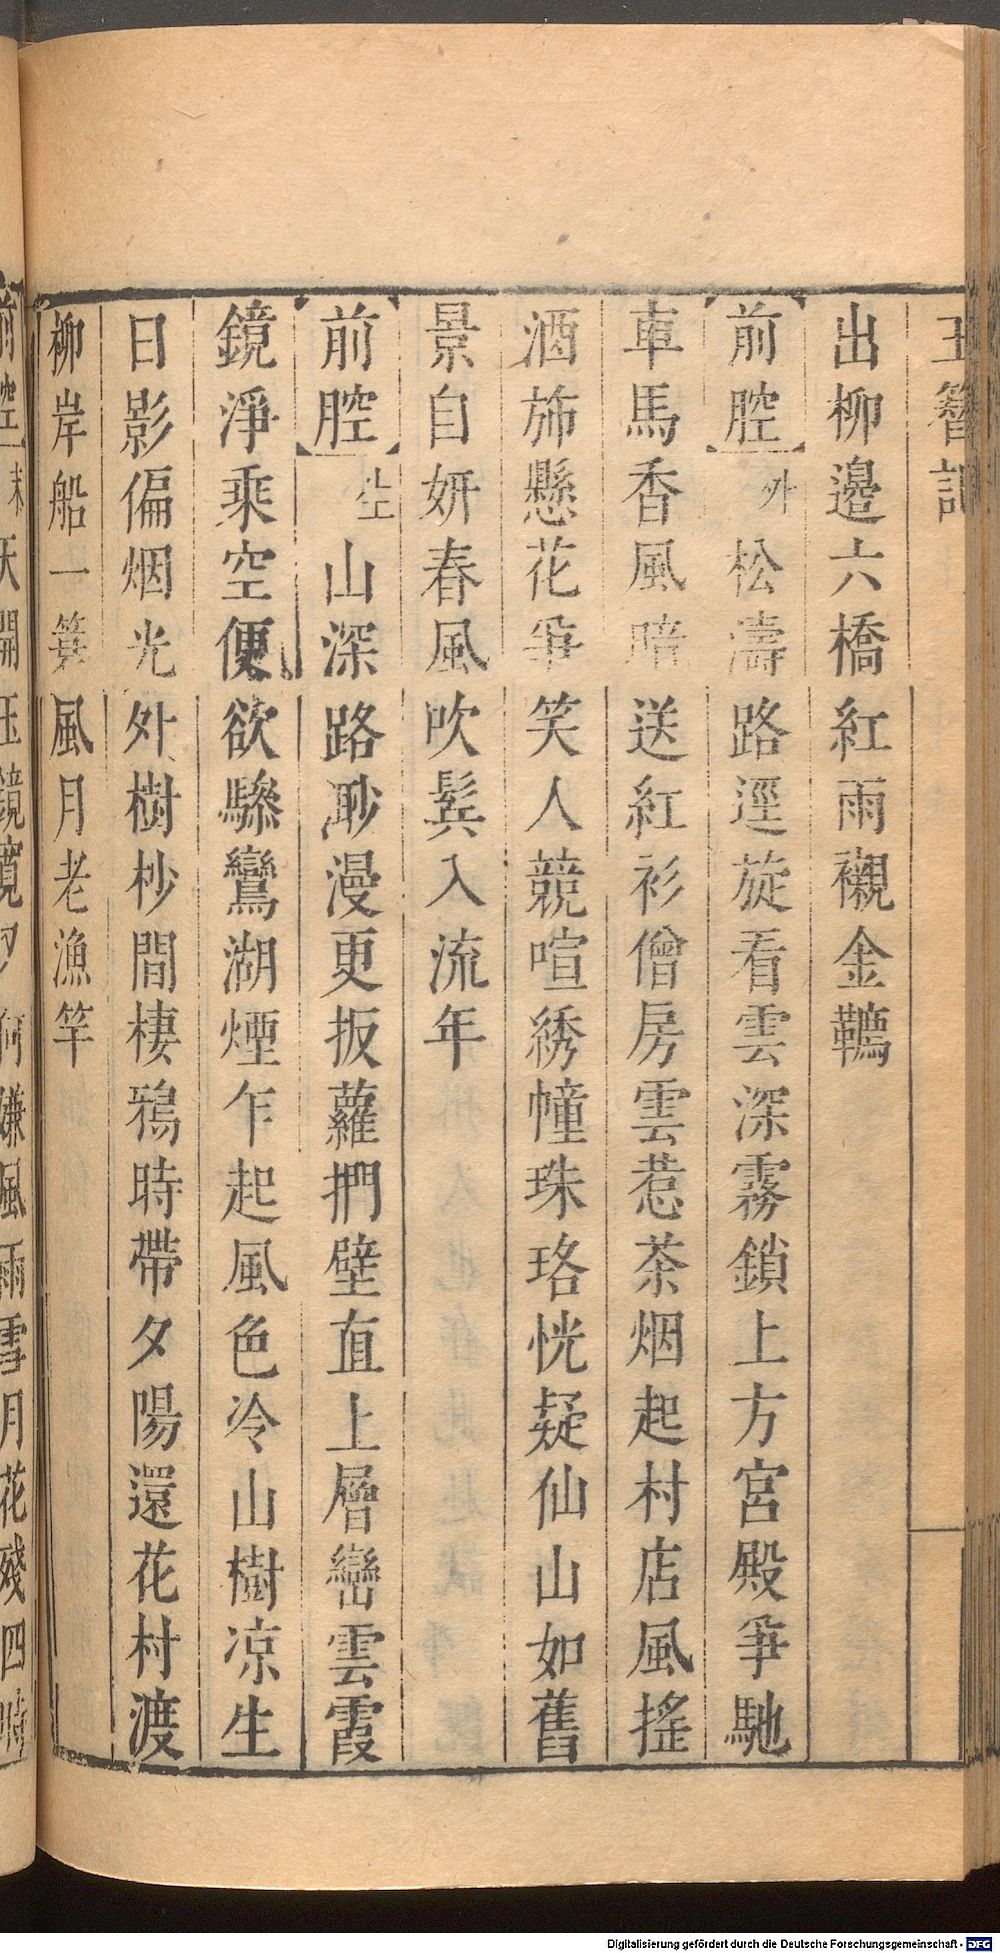 玉簪記
出柳邉六橋紅雨襯金韉
前腔外松濤路逕旋看雲深霧鎖上方宮殿爭馳
車馬香風暗送紅衫僧房雲惹茶烟起村店風搖
酒斾懸花爭笑人競喧綉幢珠珞恍疑仙山如舊
景自妍春風吹鬂入流年
前腔生山深路渺漫更扳蘿捫壁直上層巒雲霞
鏡淨乘空便欲驂鸞湖煙乍起風色冷山樹凉生
日影偏烟光外樹杪間棲鴉時帶夕陽還花村渡
柳岸船一簑風月老漁竿
前腔末天開玉鏡寬夕何嫌風雨雪月花殘四時
Digitalisierung gefördert durch die Deutsche Forschungsgemeinschaft - DFG